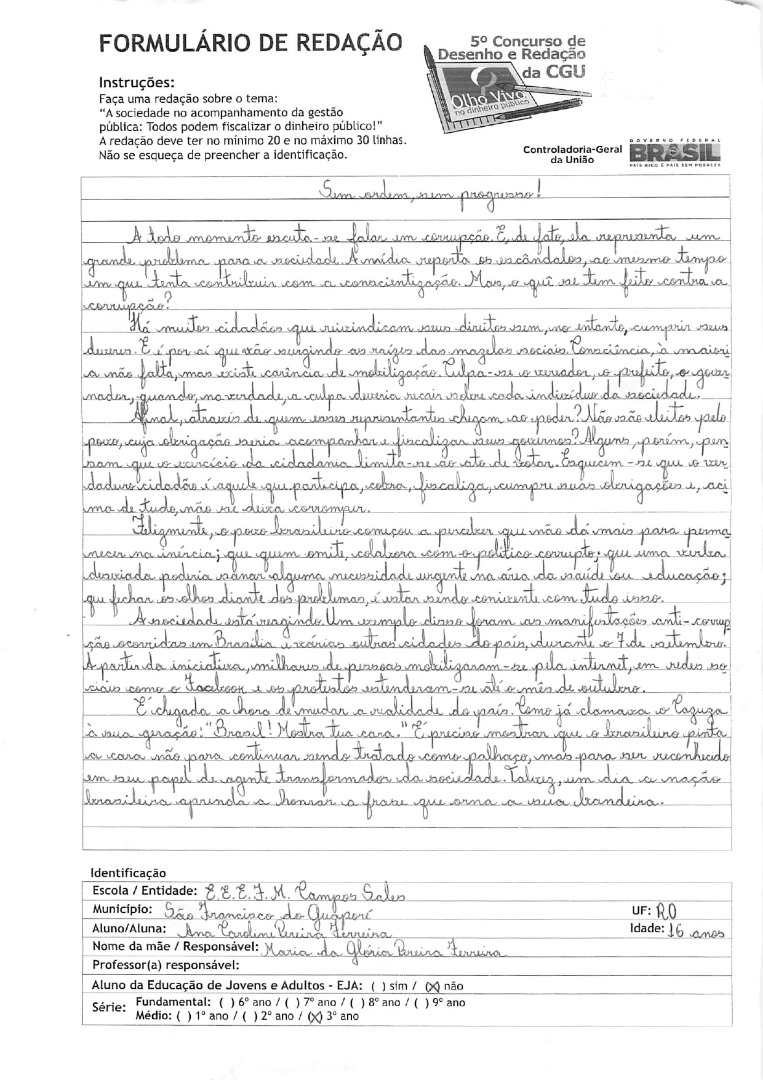 FORMULÁRIO DE REDAÇÃO
5º Concurso de
Desenho e Redação
da CGU
Olho Vivo
no dinheiro público
Instruções:
Faça uma redação sobre o tema:
"A sociedade no acompanhamento da gestão
pública: Todos podem fiscalizar o dinheiro público!"
A redação deve ter no mínimo 20 e no máximo 30 linhas.
Não se esqueça de preencher a identificação.
Controladoria-Geral
da União
GOVERNO FEDERAL
BRASIL
PAÍS RICO É PAÍS SEM POBREZA
Sem ordem, sem progresso!
A todo momento escuta-se falar em corrupção. E, de fato, ela representa um
grande problema para a sociedade. A mídia reporta os escândalos, ao mesmo tempo
em que tenta contribuir com a conscientização. Mas, o quê se tem feito contra a
corrupção?
Há muitos cidadãos que reivindicam seus direitos sem, no entanto, cumprir seus
deveres. E é por aí que vão surgindo as raízes das mazelas sociais. Consciência, à maiori
a não falta, mas existe carência de mobilização. Culpa-se o vereador, o prefeito, o gover
nador, quando, na verdade, a culpa deveria recair sobre cada indivíduo da sociedade.
Afinal, através de quem esses representantes chegam ao poder? Não são eleitos pelo
povo, cuja obrigação seria acompanhar e fiscalizar seus governos? Alguns, porém, pen
sam que o exercício da cidadania limita-se ao ato de votar. Esquecem-se que o ver
dadeiro cidadão é aquele que participa, cobra, fiscaliza, cumpre suas obrigações e, aci
ma de tudo, não se deixa corromper.
Felizmente, o povo brasileiro começou a perceber que não dá mais para perma
necer na inércia; que quem omite, colabora com o político corrupto; que uma verba
desviada poderia sanar alguma necessidade urgente na área da saúde ou educação;
que fechar os olhos diante dos problemas, é estar sendo conivente com tudo isso.
A sociedade está reagindo. Um exemplo disso foram as manifestações anti-corrup
ção ocorridas em Brasília e várias outras cidades do país, durante o 7 de setembro.
A partir da iniciativa, milhares de pessoas mobilizaram-se pela internet, em redes so
ciais como o Facebook e os protestos estenderam-se até o mês de outubro.
É chegada a hora de mudar a realidade do país. Como já clamava o Cazuza
à sua geração: "Brasil! Mostra tua cara." É preciso mostrar que o brasileiro pinta
a cara não para continuar sendo tratado como palhaço, mas para ser reconhecido
em seu papel de agente transformador da sociedade. Talvez, um dia a nação
brasileira aprenda a honrar a frase que orna a sua bandeira.
Identificação
Escola / Entidade: E.E.E.F.M. Campos Sales
Município: São Francisco do Guaporé UF: RO
Aluno/Aluna: Ana Caroline Pereira Ferreira Idade: 16 anos
Nome da mãe / Responsável: Maria da Glória Pereira Ferreira
Professor(a) responsável:
Aluno da Educação de Jovens e Adultos - EJA: ( ) sim / (X) não
Série: Fundamental: ( ) 6º ano / ( ) 7º ano / ( ) 8º ano / ( ) 9º ano
Médio: ( ) 1º ano / ( ) 2º ano / (X) 3º ano